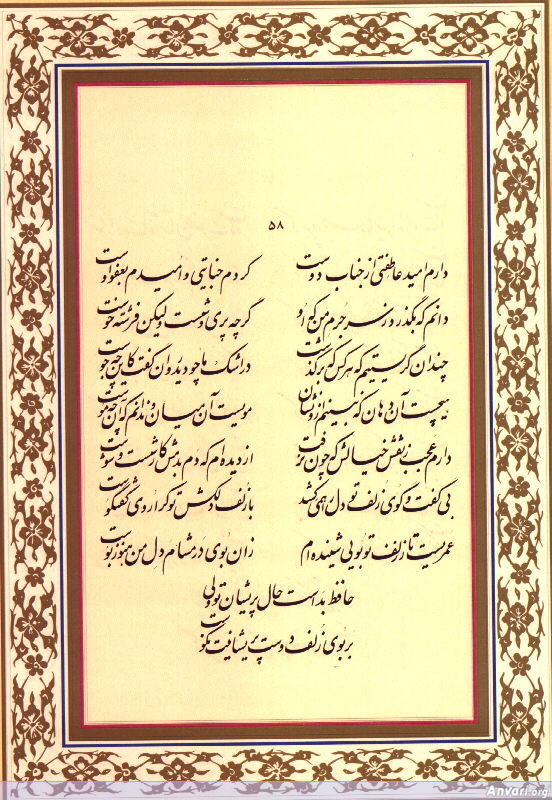 ۵۸
دارم امید عاطفتی از جناب دوست کردم جنایتی و امیدم بعفو اوست
دانم که بگذرد ز سر جرم من که او گرچه پری وشست ولیکن فرشته خوست
چندان گریستیم که هر کس که برگذشت در اشک ما چو دید روان گفت کاین چه جوست
هیچست آن دهان که نبینم ازو نشان مویست آن میان و ندانم که آن چه موست
دارم عجب ز نقش خیالش که چون نرفت از دیده ام که دم بدمش کار شست و شوست
بی گفت و گوی زلف تو دل همی کشد با زلف دلکش تو کرا روی گفتگوست
عمریست تا ز زلف تو بویی شنیده ام زان بوی در مشام دل من هنوز بوست
حافظ بدست حال پریشان تو ولی
بر بوی زلف دوست پریشانیت نکوست
Anvari.org